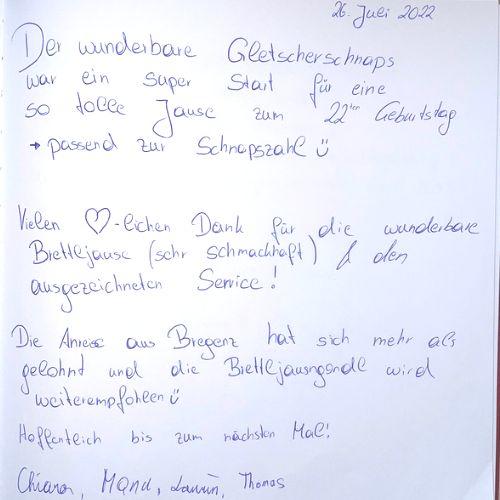 26. Juli 2022
Der wunderbare Gletscherschnaps
war ein super Start für eine
so tolle Jause zum 22ten Geburtstag
→ passend zur Schnapszahl ü
Vielen ♡-lichen Dank für die wunderbare
Brettljause (sehr schmackhaft) & den
ausgezeichneten Service!
Die Anreise aus Bregenz hat sich mehr als
gelohnt und die wird
weiterempfohlen ü
Hoffentlich bis zum nächsten Mal!
Thomas